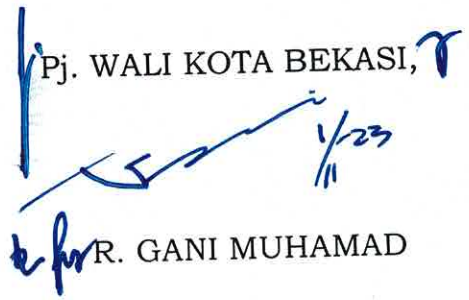 Pj. WALI KOTA BEKASI,
1/11-23
R. GANI MUHAMAD